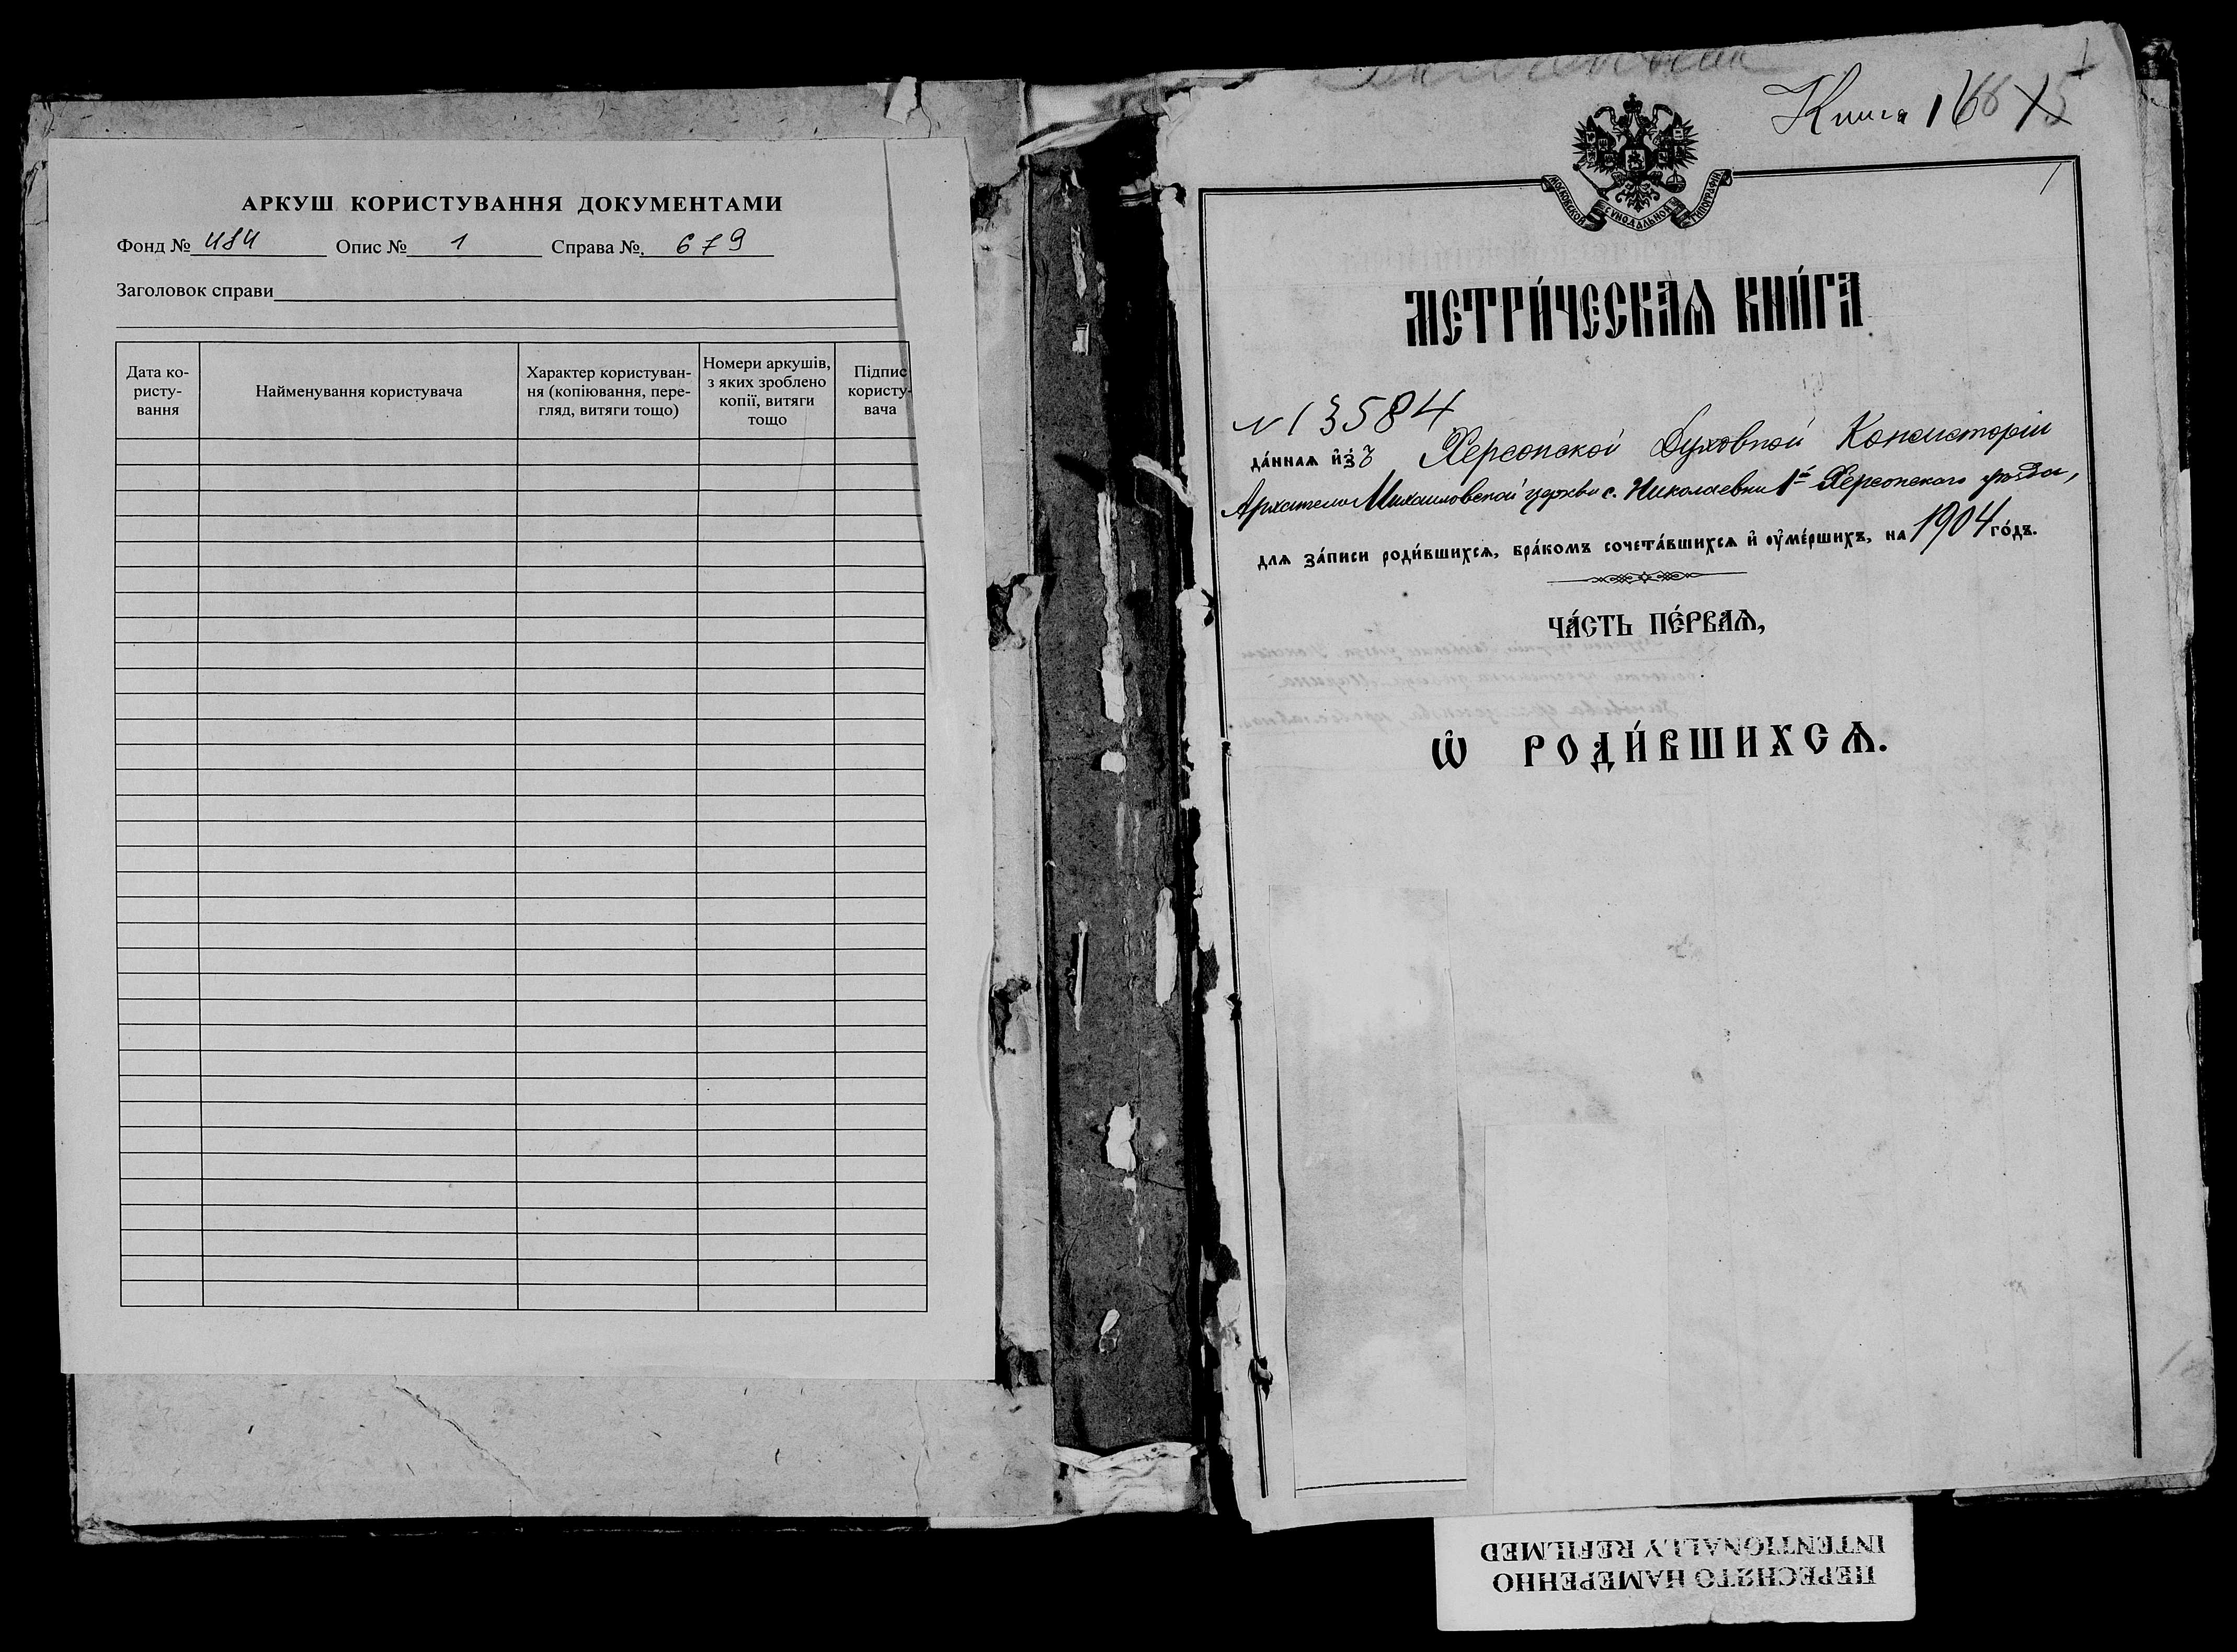 АРКУШ КОРИСТУВАННЯ ДОКУМЕНТАМИ
Фонд № 484 Опис № 1 Справа № 679
Заголовок справи
Дата ко-
ристу-
вання
Найменування користувача
Характер користуван-
ня (копіювання, пере-
гляд, витяги тощо)
Номери аркушів,
з яких зроблено
копії, витяги
тощо
Підпис
користу-
вача
Книга
1
МОСКОВСКОЙ СѴНОДАЛЬНОЙ ТИПОГРАФІИ
МЕТРИ́ЧЕСКАѦ КНИ́ГА
N 13584
да́ннаѧ и҆з̾ Херсонской Духовной Консисторіи
Архангело Михаиловской церкви с. Николаевки 1й Херсонского уѣзда,
длѧ за́писи роди́вшихсѧ, бра́комъ сочета́вшихсѧ и҆ оу҆ме́ршихъ, на 1904 го́дъ.
ЧА́СТЬ ПЕ́РВАѦ,
Ѽ РОДИ́ВШИХСѦ.
ПЕРЕСНЯТО НАМЕРЕННО
INTENTIONALLY REFILMED